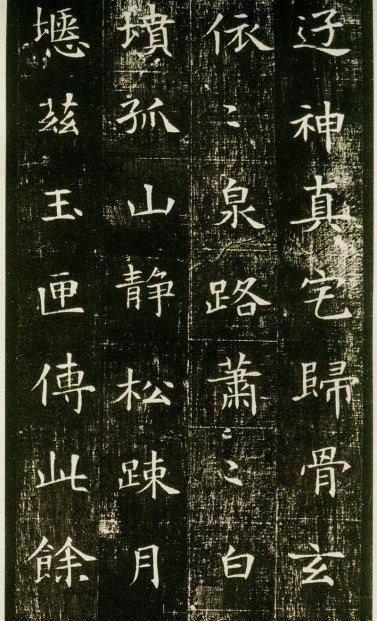 遊神真宅歸骨玄
依〻泉路蕭〻白
墳孤山靜松踈月
瘞茲玉匣傳此餘